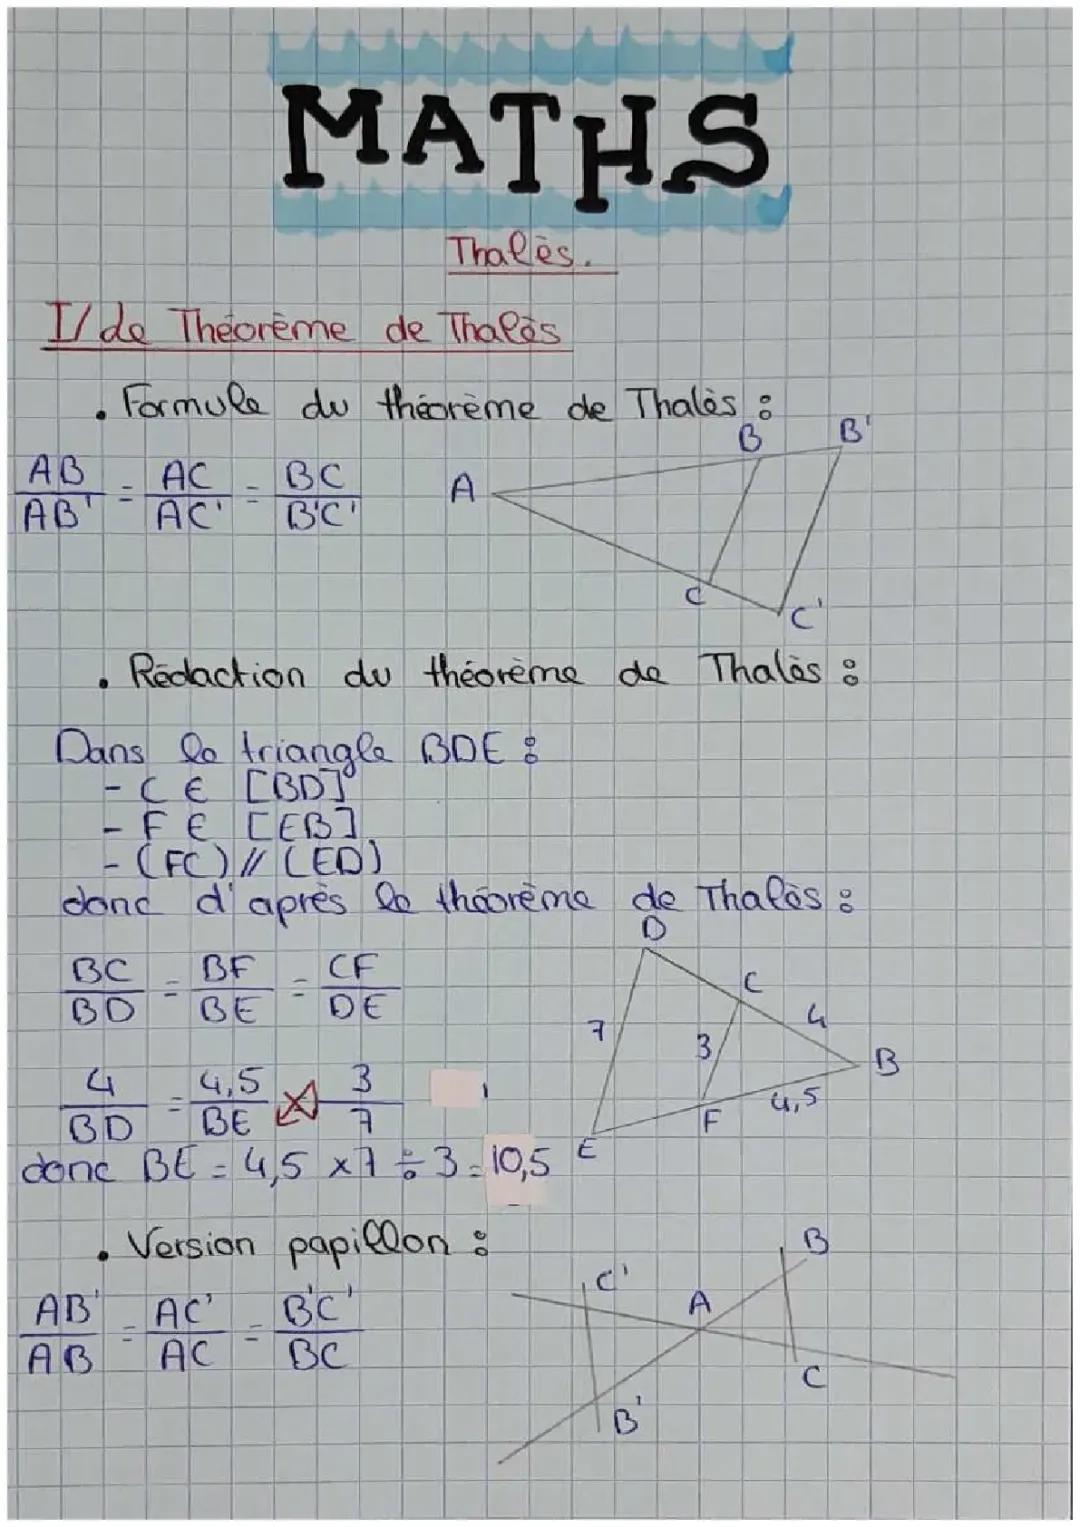 MATHS
Thalès.
I/ Le Théorème de Thalès
• Formule du théorème de Thalès :
B B'
AB/AB' = AC/AC' = BC/B'C' A
C C'
• Rédaction du théorème de Thalès :
Dans le triangle BDE :
- C ∈ [BD]
- F ∈ [EB]
- (FC) // (ED)
donc d'après le théorème de Thalès :
D
BC/BD = BF/BE = CF/DE C
7 3 4 B
4/BD = 4,5/BE = 3/7 F 4,5
E
donc BE = 4,5 x 7 ÷ 3 = 10,5
• Version papillon :
B
C' A
AB'/AB = AC'/AC = B'C'/BC
C
B'